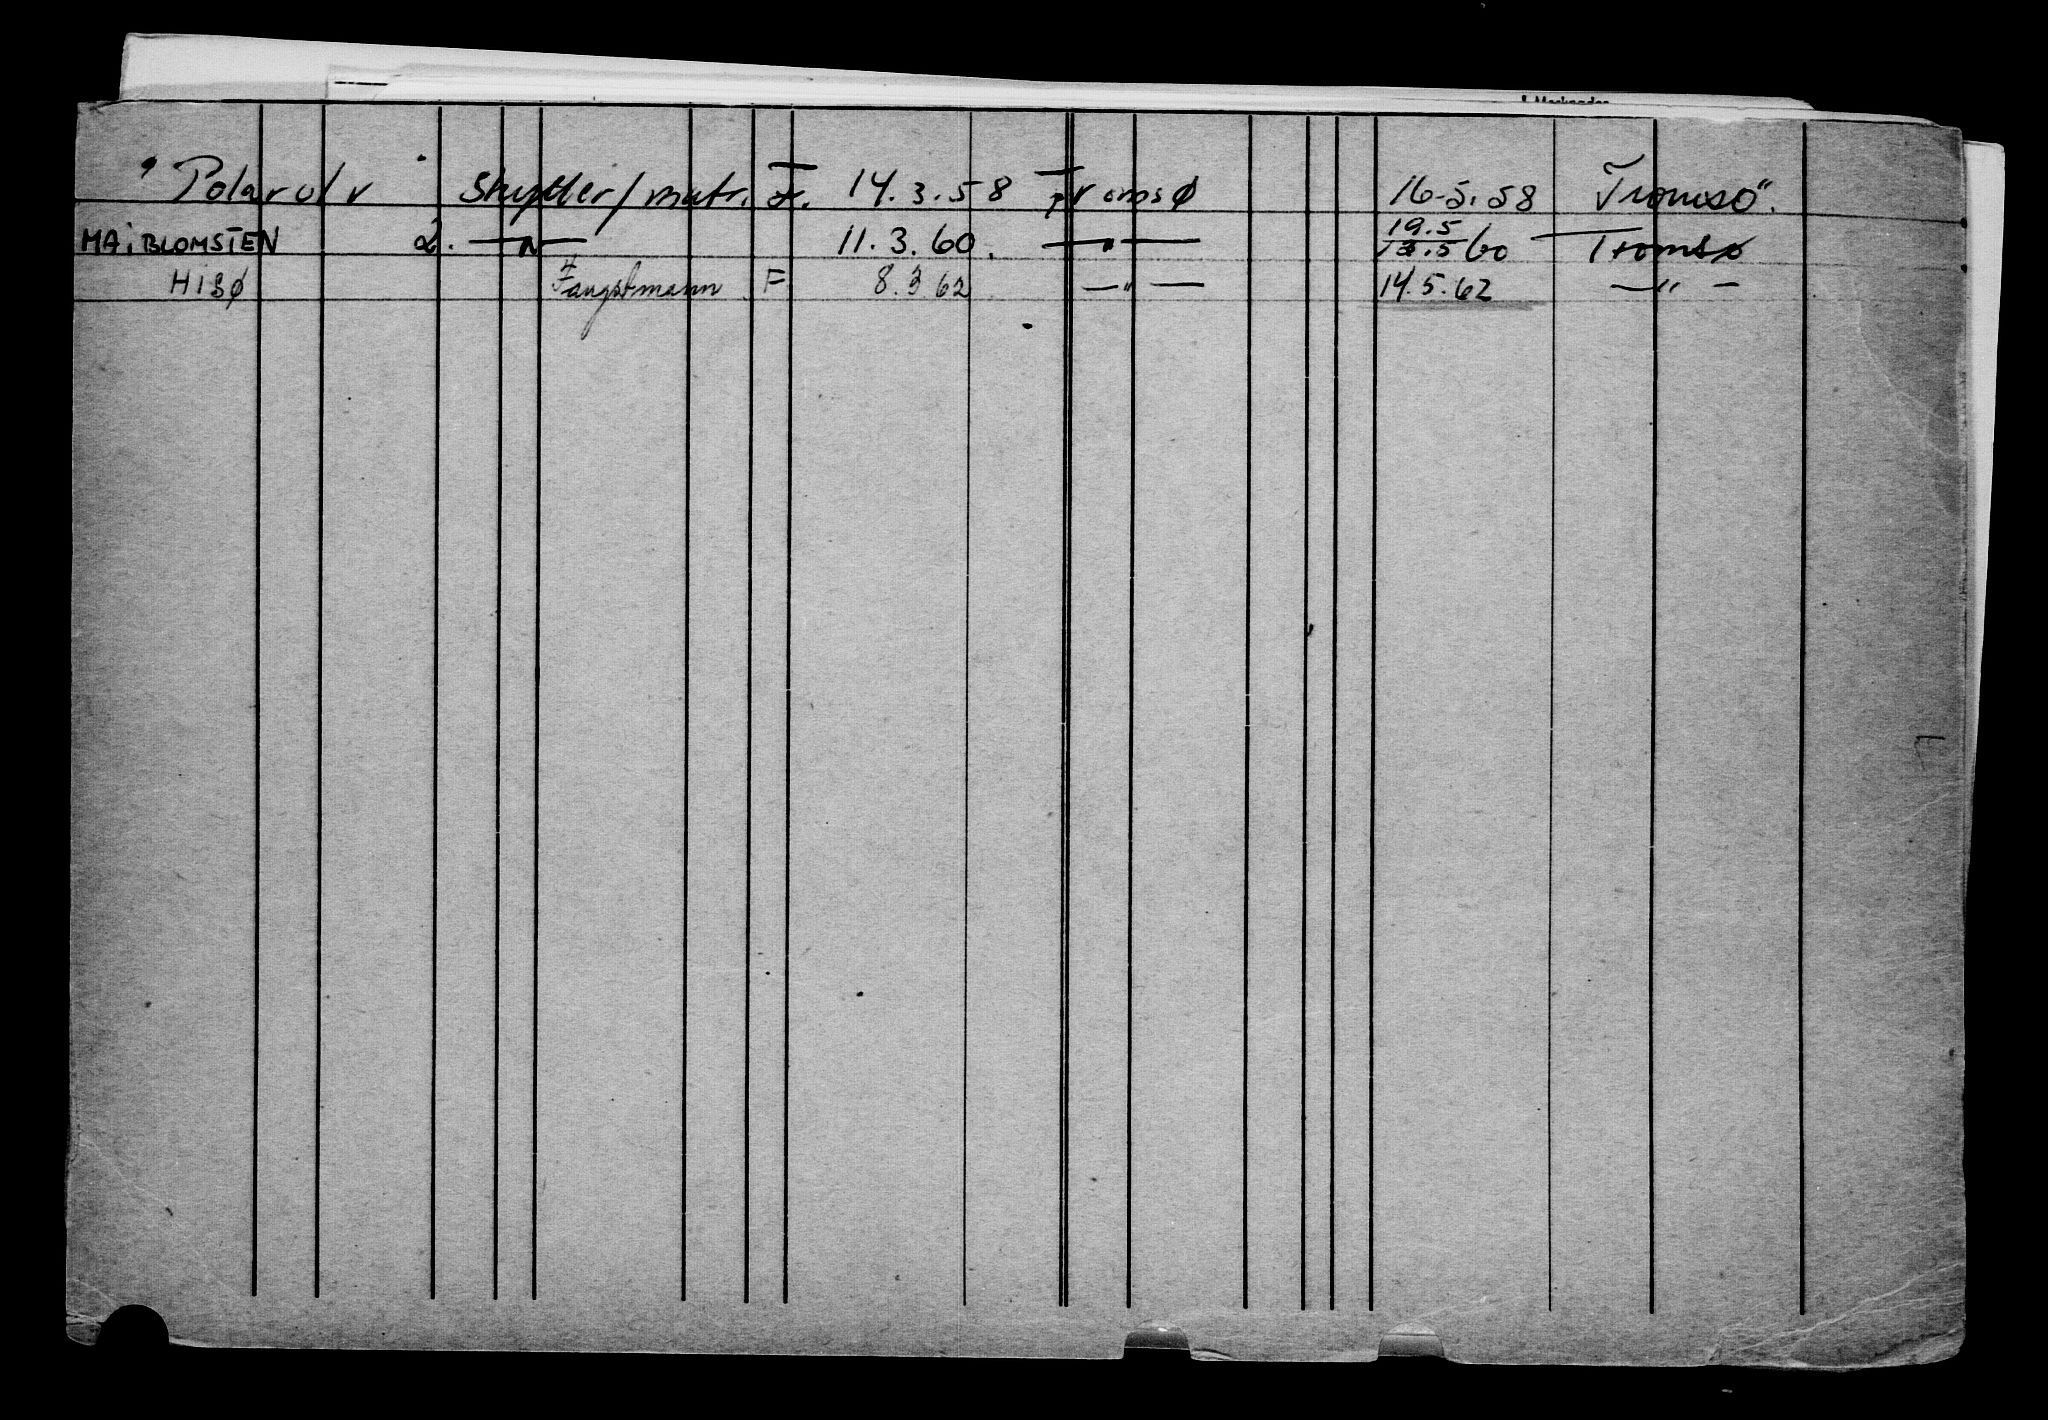 "Polarulv" Skytter/matr. Fr. 14.3.58 Tromsø 16-5.58 Tromsö".
MAiBLOMSTEN 2. —"— 11.3.60. —"— 19.5 13.5 60 Tromsø
HISØ Fangstmann F 8.3 62 —"— 14.5.62 —"—